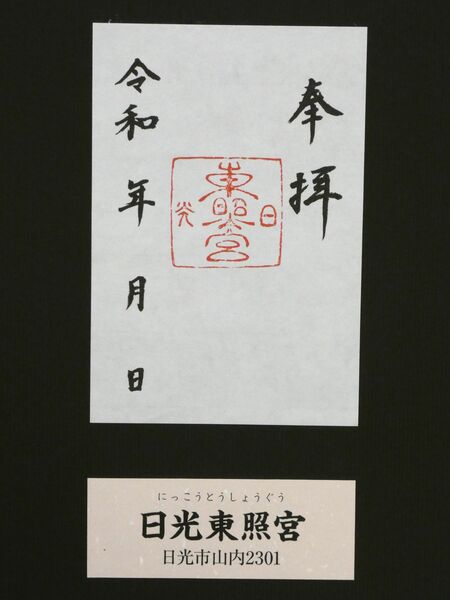 奉拝
日光
東照宮
令和 年 月 日
にっこうとうしょうぐう
日光東照宮
日光市山内2301